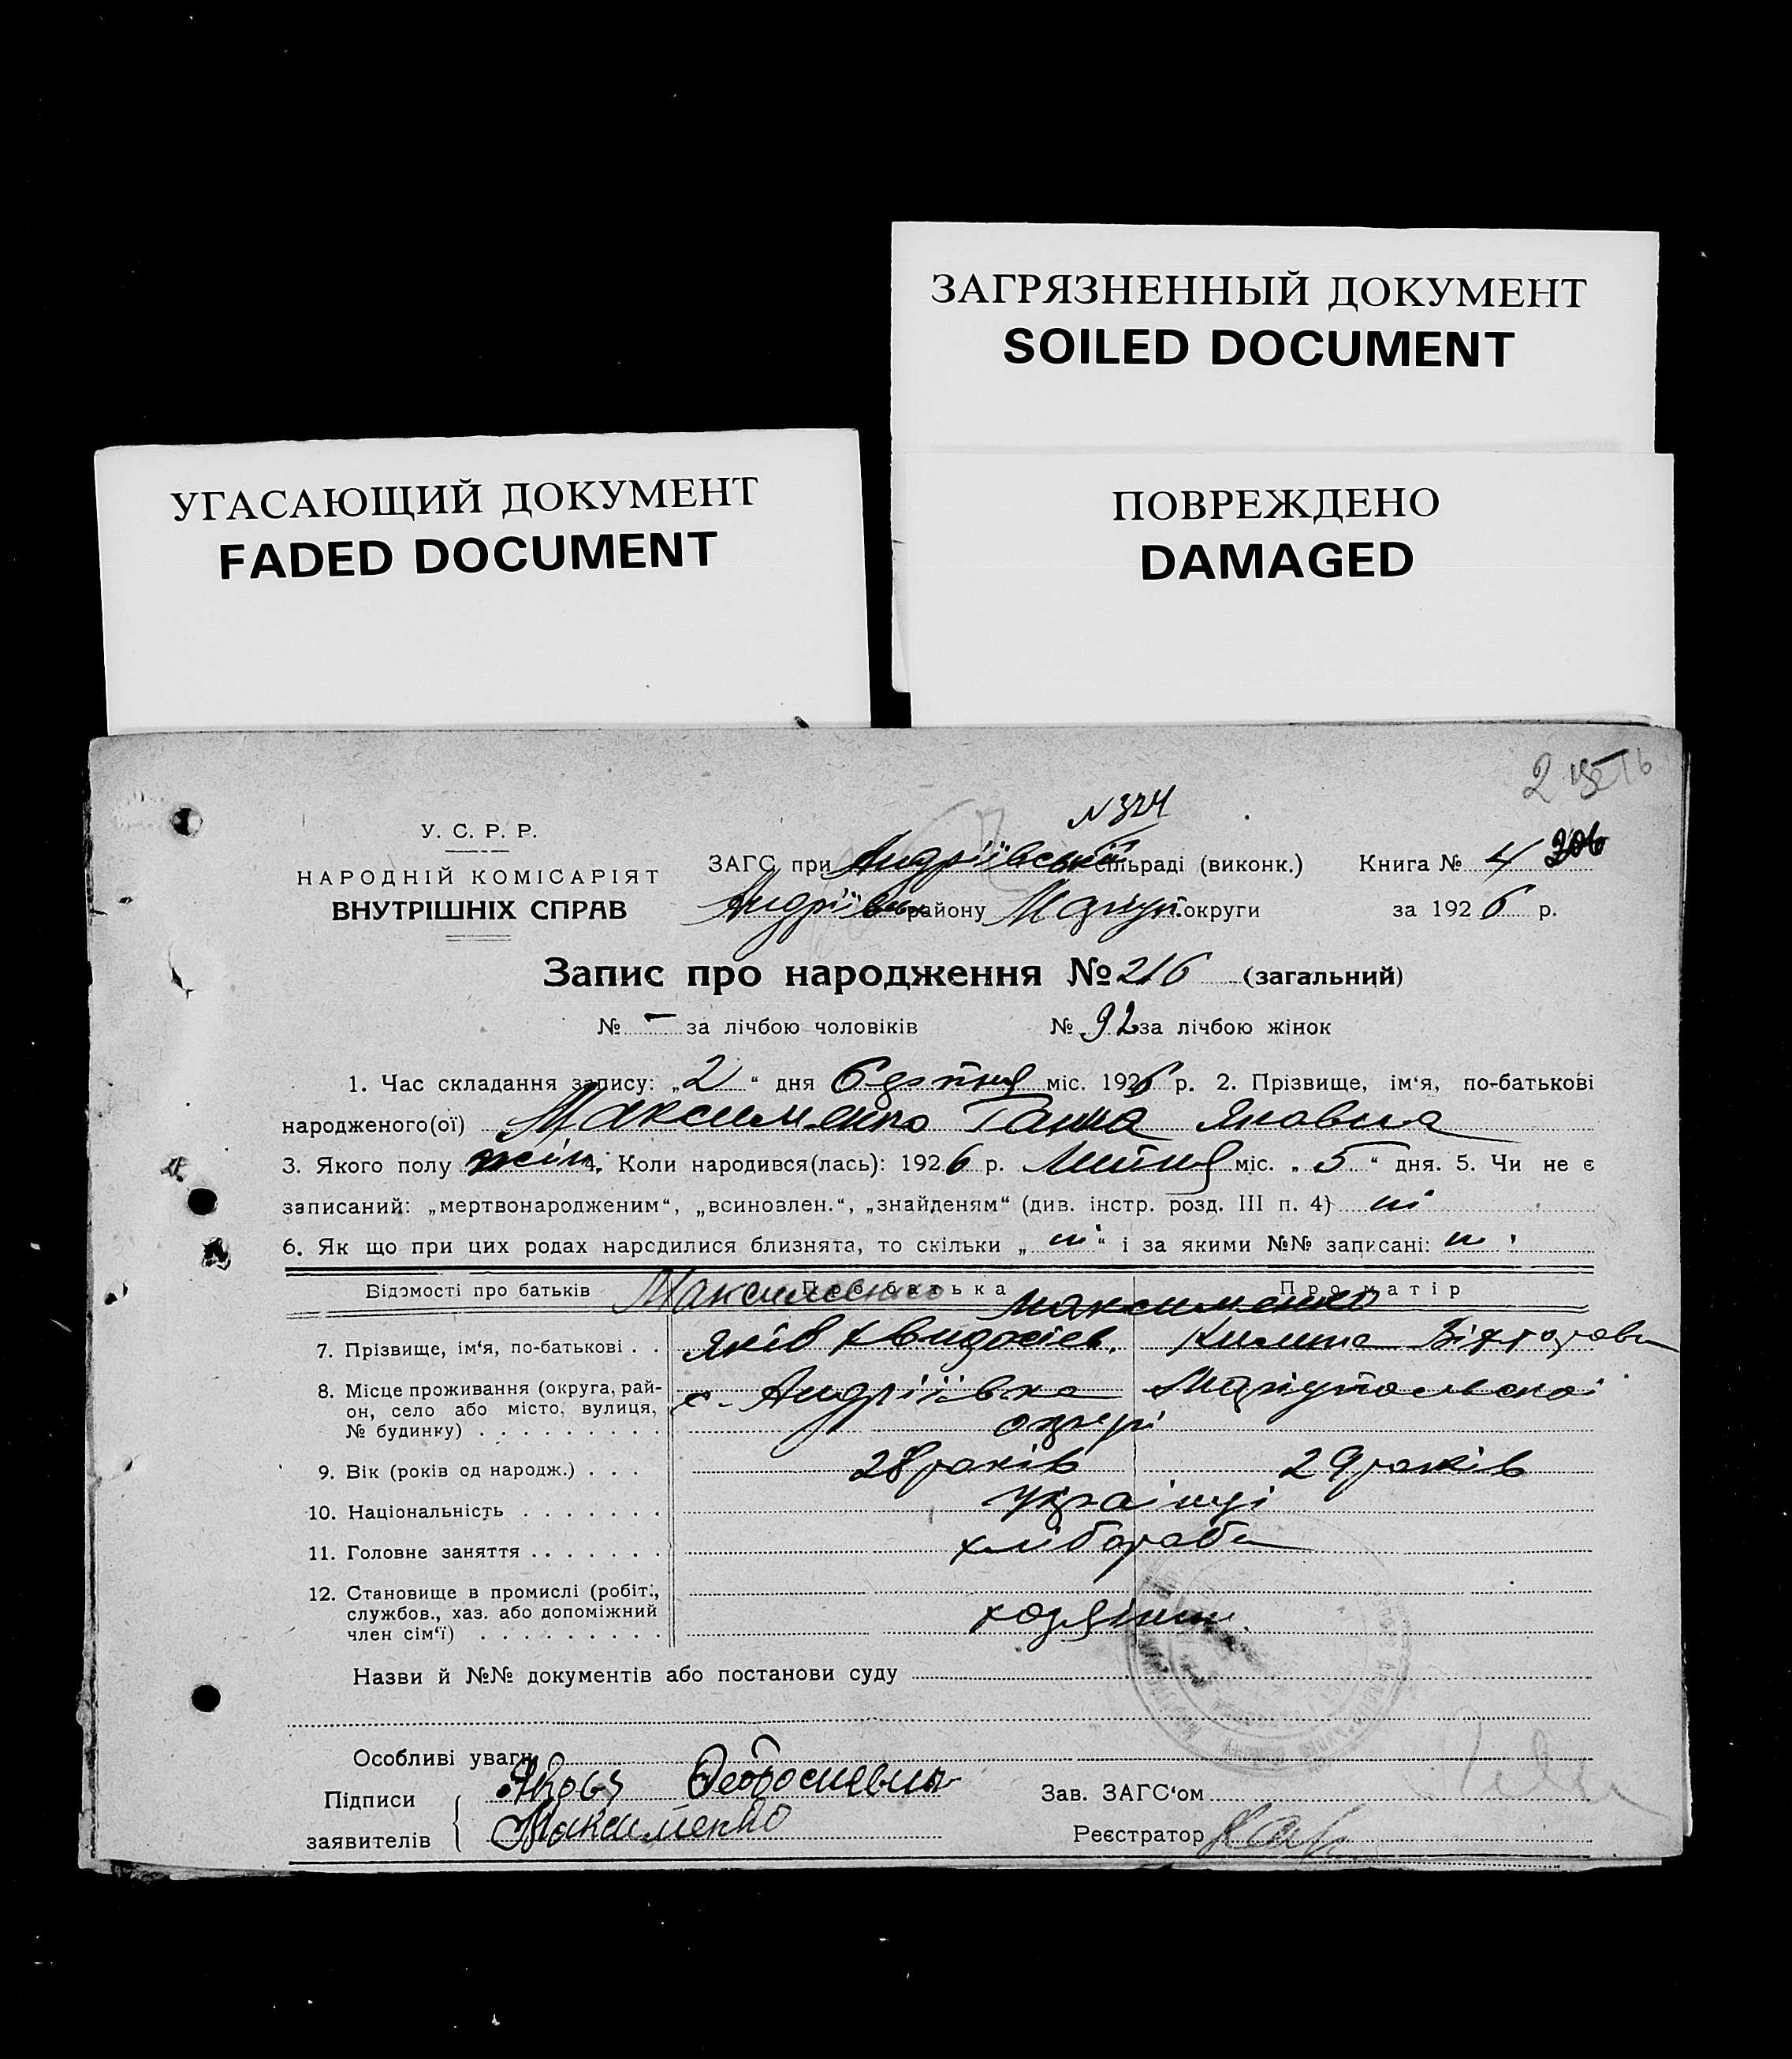 ЗАГРЯЗНЕННЫЙ ДОКУМЕНТ
SOILED DOCUMENT
УГАСАЮЩИЙ ДОКУМЕНТ
FADED DOCUMENT
ПОВРЕЖДЕНО
DAMAGED
N 324
У. С. Р. Р.
НАРОДНІЙ КОМІСАРІЯТ
ВНУТРІШНІХ СПРАВ
ЗАГС при Андріївській сільраді (виконк.) Книга № 4 206
Андріївськ району Маріуп. округи за 1926 р.
Запис про народження № 216 (загальний)
№ - за лічбою чоловіків № 92 за лічбою жінок
1. Час складання запису: „2“ дня серпня міс. 1926 р. 2. Прізвище, ім‘я, по-батькові
народженого(ої) Максименко Ганна Яковна
3. Якого полу жін. 4. Коли народився(лась): 1926 р. Липня міс. „5“ дня. 5. Чи не є
записаний: „мертвонародженим“, „всиновлен.“, „знайденям“ (див. інстр. розд. III п. 4) ні
6. Як що при цих родах народилися близнята, то скільки „ні“ і за якими №№ записані: ні
Відомості про батьків Про батька Про матір
Максименко Максименко
7. Прізвище, ім‘я, по-батькові . . Яків
8. Місце проживання (округа, рай-
он, село або місто, вулиця,
№ будинку) . . . . . . . . .
с. Андріївка Маріупольської
округі
9. Вік (років од народж.) . . . 28 років 29 років
10. Національність . . . . . . . Українці
11. Головне заняття . . . . . . хлібороби
12. Становище в промислі (робіт.,
службов., хаз. або допоміжний
член сім‘ї) . . . . . . . . .
Назви й №№ документів або постанови суду
Особливі уваги
Підписи
заявителів
Яковъ
Максименко
Зав. ЗАГС‘ом
Реєстратор